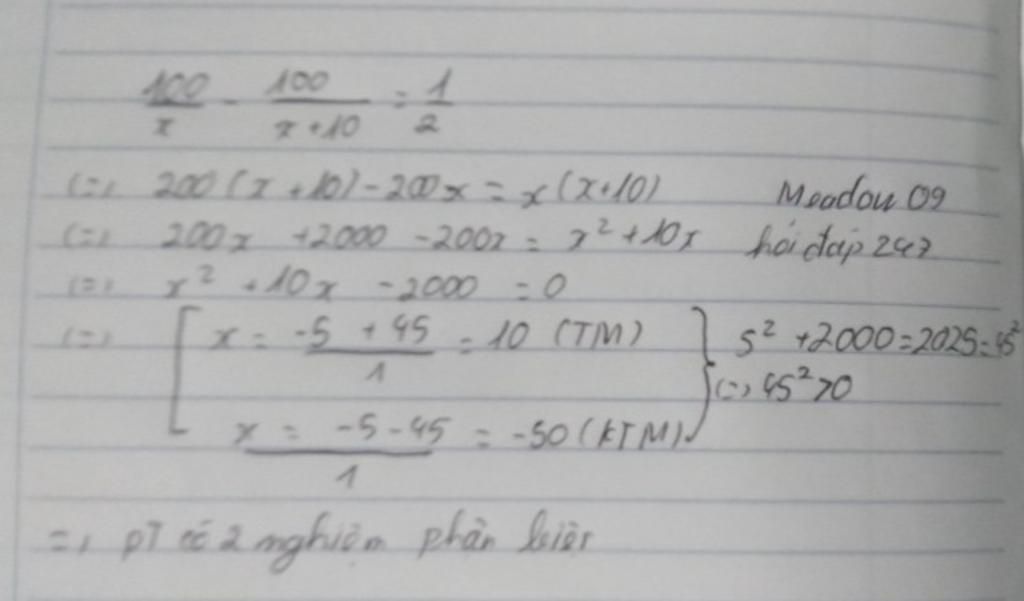 100/x - 100/(x+10) = 1/2
(=) 200(x+10)-200x = x(x+10) Meadow 09
(=) 200x +2000 -200x = x² +10x hỏi đáp 247
(=) x² +10x -2000 = 0
(=) [ x = (-5 + 45)/1 = 10 (TM) } 5² +2000=2025=45²
(=) 45²>0
x = (-5-45)/1 = -50 (KTM)
=) PT có 2 nghiệm phân biệt